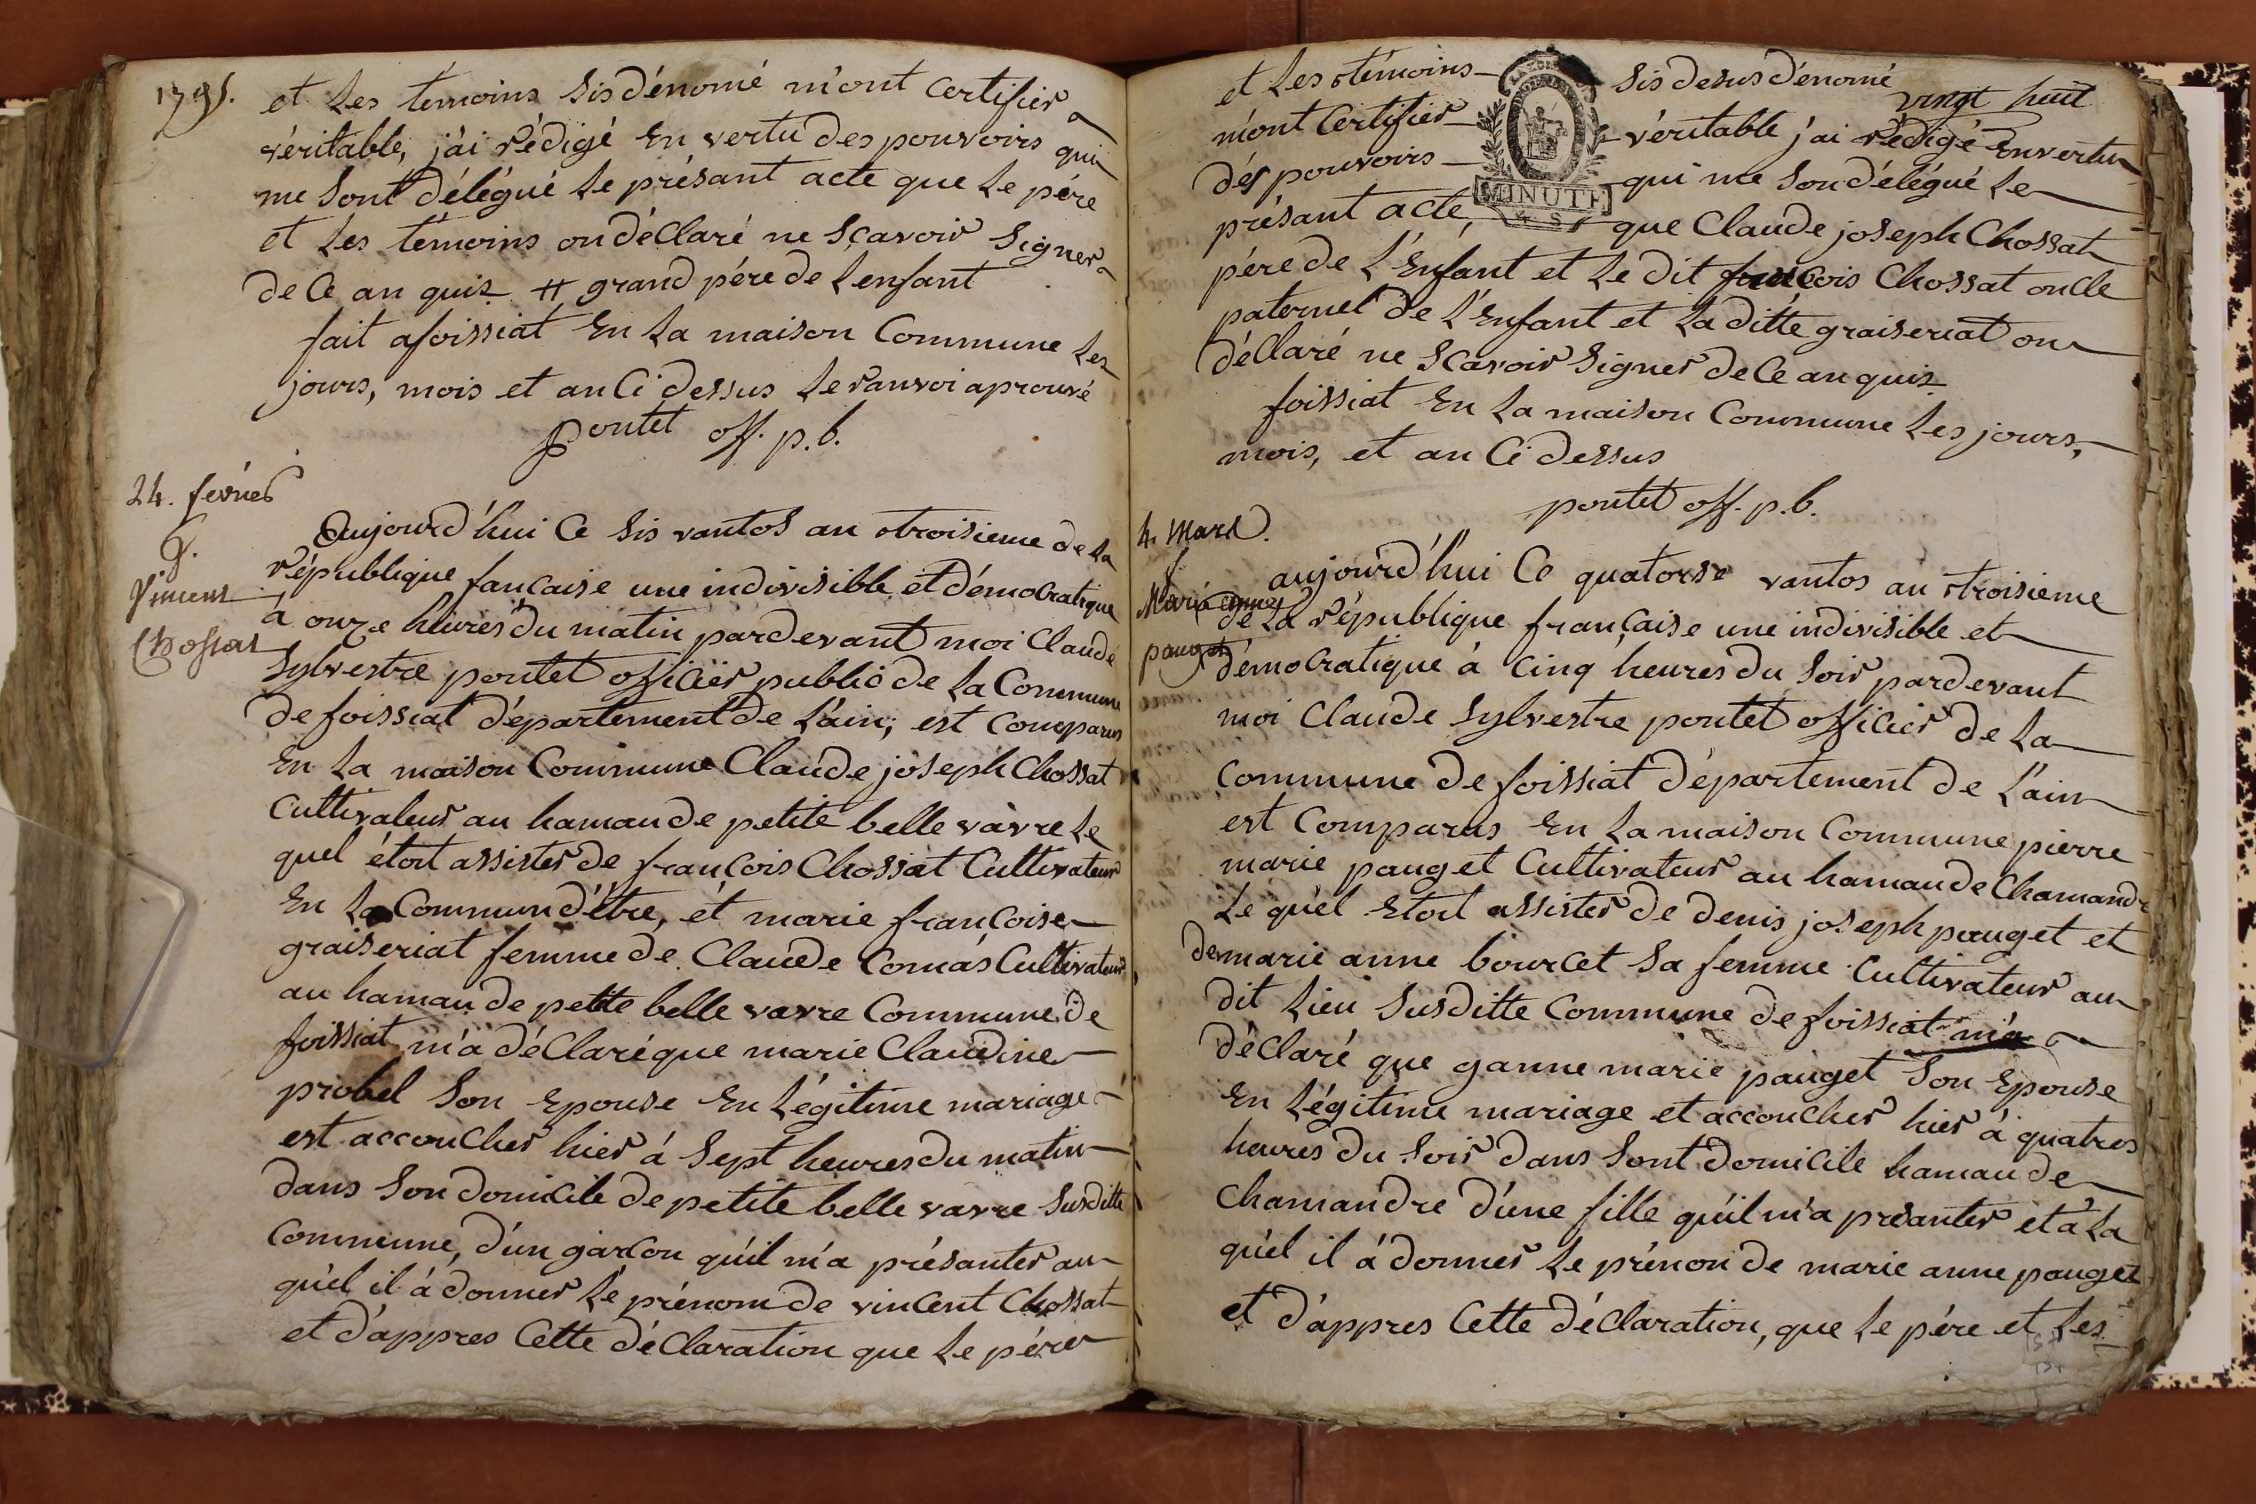 1795.
et les témoins sis dénomé m'ont certifier
véritable, j'ai rédigé en vertu des pouvoirs qui
me sont délégué le présant acte que le pére
et les témoins on déclaré ne sçavoir signer
de ce an quis # grand pére de l'enfant
fait a foissiat en la maison commune les
jours, mois et an ci dessus le ranvoi aprouvé
pontet off. p. b.
24. fevrier
g.
Vincent
Chossat
aujourd'hui ce sis vantos an troisieme de la
république fancaise une indivisible et démocratique
à onze heures du matin pardevant moi claude
sylvestre pontet officier public de la commune
de foissiat département de l'ain, est comparus
en la maison commune Claude joseph Chossat
cultivateur au hamau de petite belle vavre le
quel étoit assister de françois Chossat cultivateur
en la commun d'être, et marie françoise
graiseriat femme de Claude Comas cultivateur
au hamau de petite belle vavre commune de
foissiat m'a déclaré que marie claudine
probel son epouse en légitime mariage
est accoucher hier à sept heures du matin
dans son domicile de petite belle vavre susditte
commune, d'un garcon qu'il m'a présanter au
quel il a donner le prénom de vincent Chossat
et d'appres cette déclaration que le pére
vingt huit
et les témoins sis desus dénomé
m'ont certifier véritable j'ai rédigé en vertu
dés pouvoirs qui me son délégué le
présant acte, que Claude joseph Chossat
MINUTE
4 S
pére de l'enfant et le dit francois Chossat oncle
paternel de l'enfant et la ditte graiseriat on
déclaré ne scavoir signer de ce an quis
foissiat en la maison commune les jours,
mois, et an ci dessus
pontet off. p. b.
4. mars.
f
Marie anne
pauget
aujourd'hui ce quatorse vantos an troisieme
de la république française une indivisible et
démocratique à cinq heures du soir pardevant
moi claude sylvestre pontet officier de la
commune de foissiat département de l'ain
est comparus en la maison commune pierre
marie pauget cultivateur au hamau de chamandre
le quel etoit assister de denis joseph pauget et
de marie anne bourcet sa femme cultivateur au
dit lieu susditte commune de foissiat m'a
déclaré que ganne marie pauget son epouse
en légitime mariage et accoucher hier à quatres
heures du soir dans sont domicile hamau de
chamandre d'une fille qu'il m'a présanter et à la
quel il à donner le prénon de marie anne pauget
et d'appres cette déclaration, que le pére et les